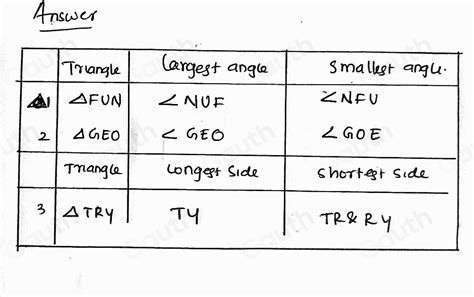 Answer
Triangle largest angle Smallest angle.
1 △FUN ∠NUF ∠NFU
2 △GEO ∠GEO ∠GOE
Triangle longest side shortest side
3 △TRY TY TR & RY